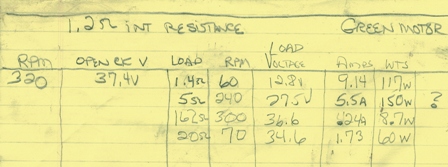 1.2Ω INT RESISTANCE GREEN MOTOR
RPM OPEN CK V LOAD RPM LOAD VOLTAGE AMPS WTS
320 37.4V 1.4Ω 60 12.8V 9.14 117W
5Ω 240 27.5V 5.5A 150W ?
162Ω 300 36.6 .24A 8.7W
20Ω 70 34.6 1.73 60W